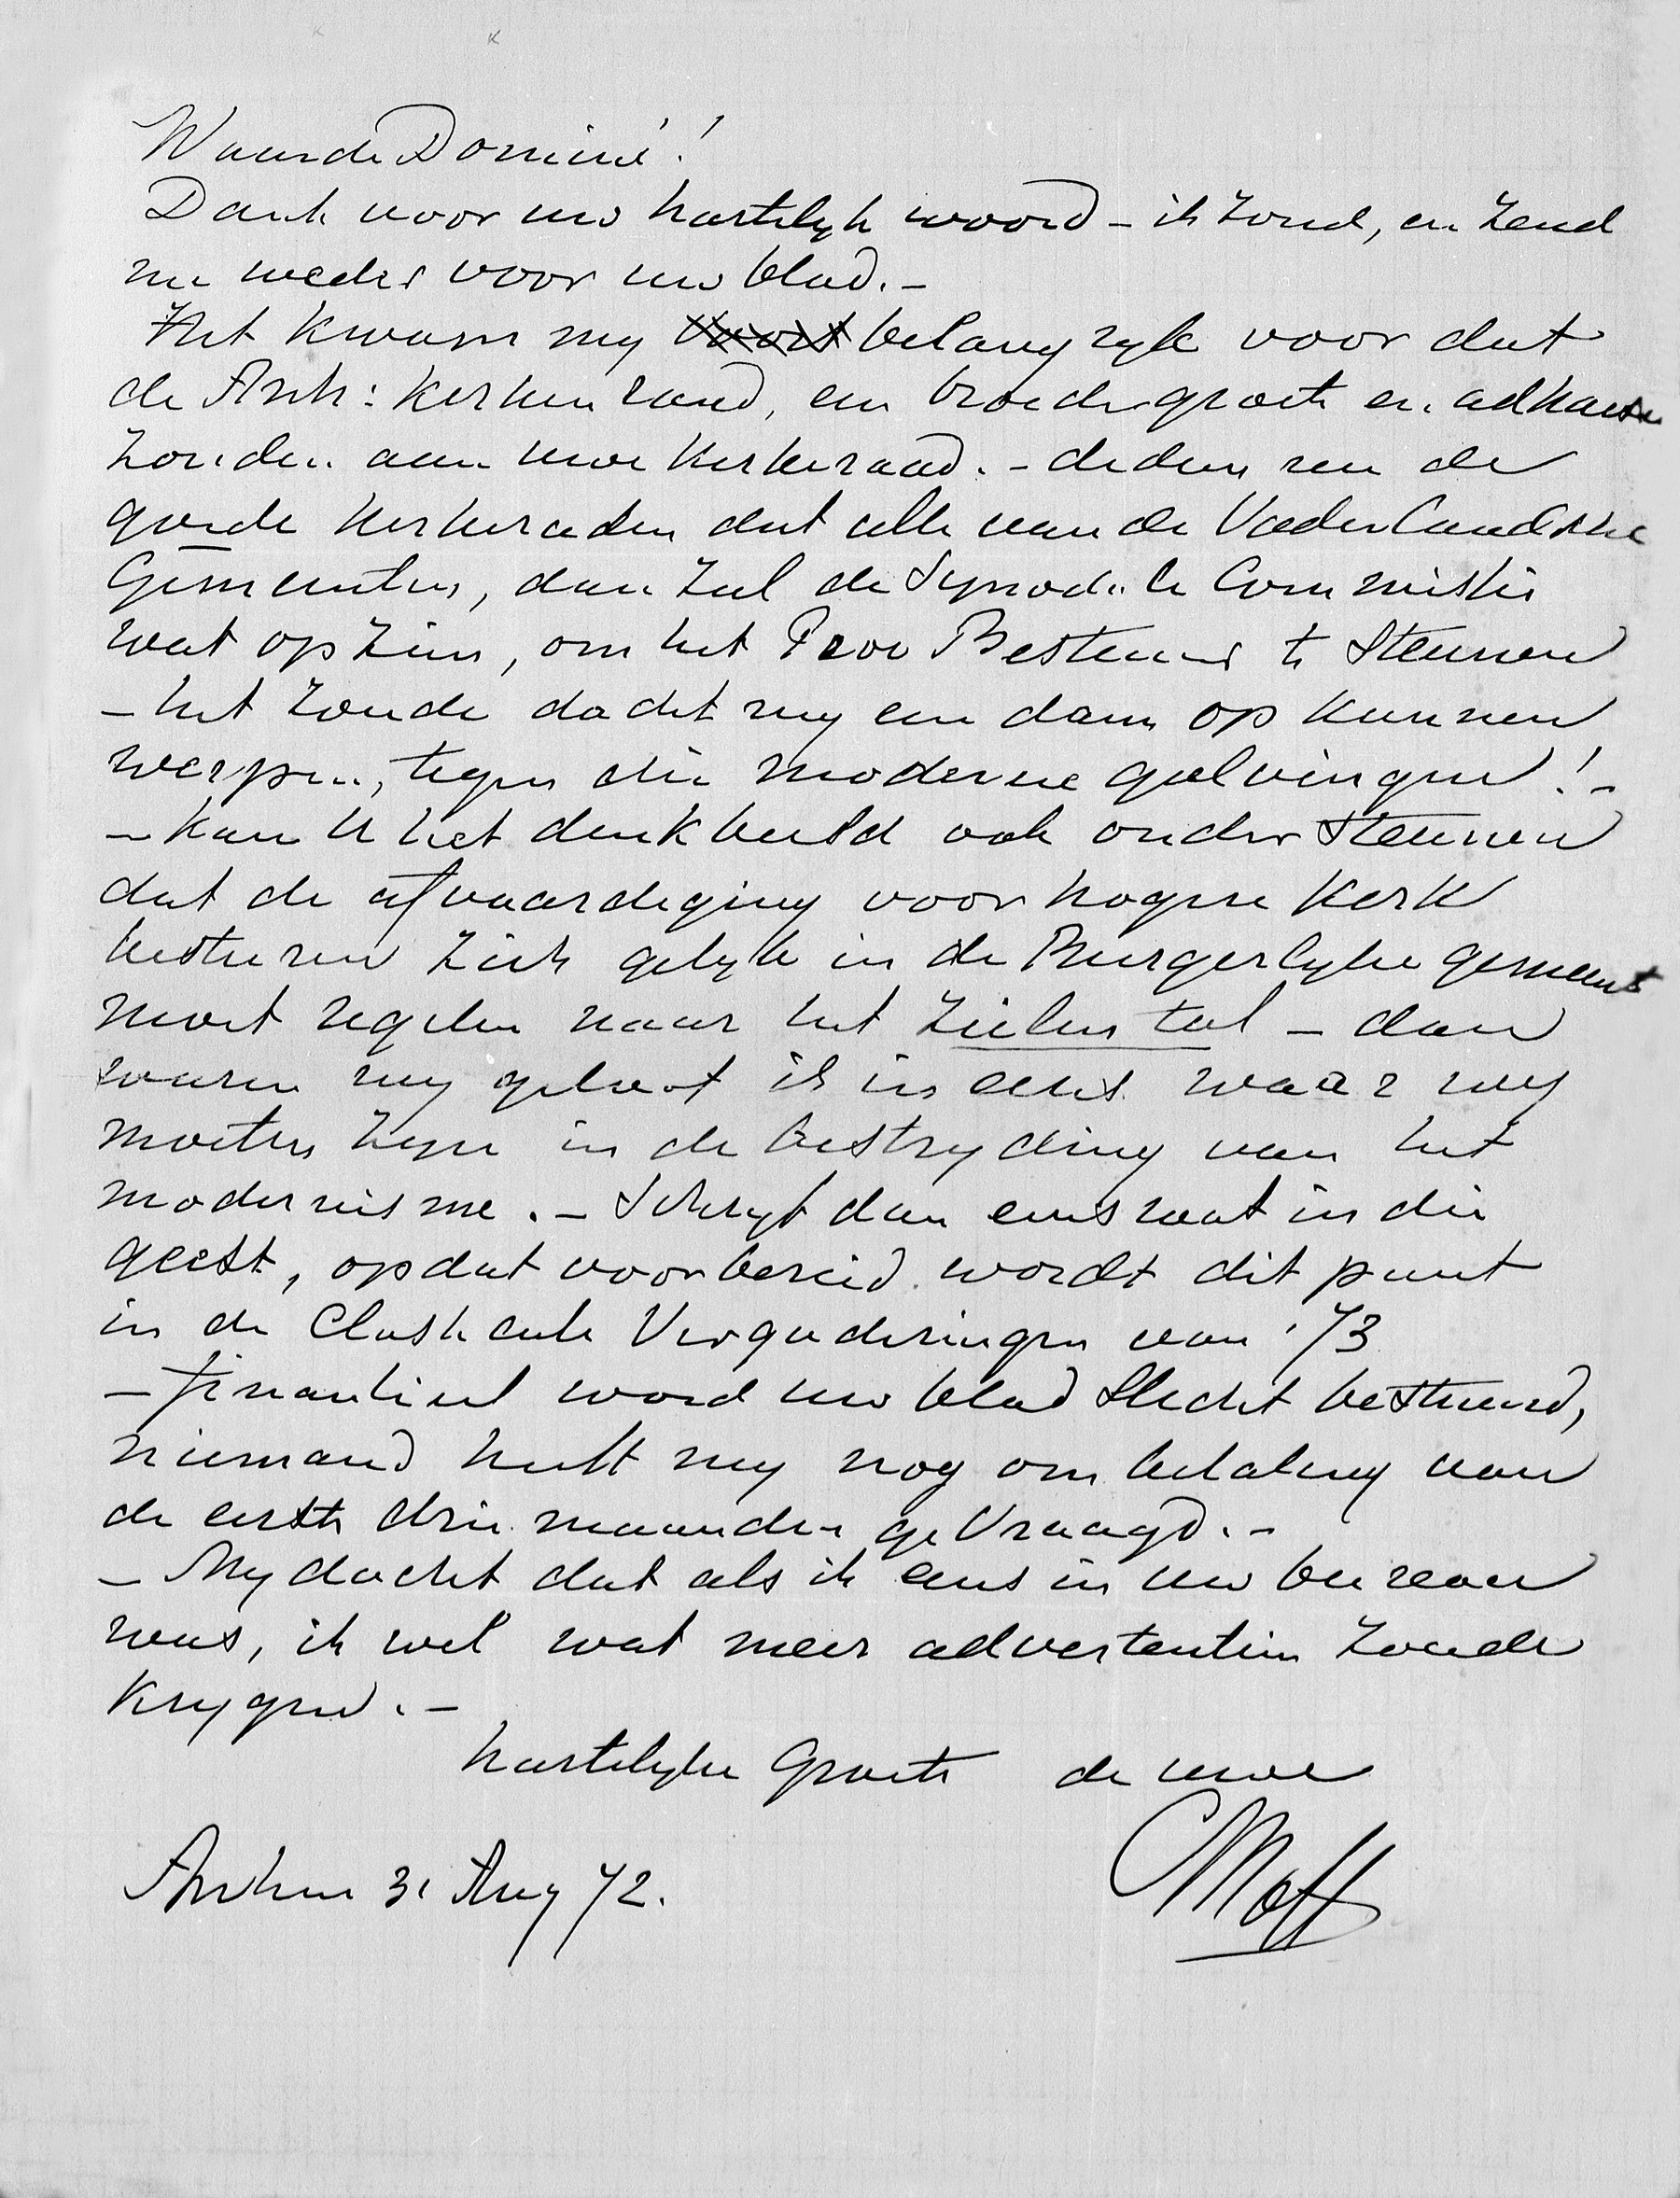 Waarde Dominé!
Dank voor uw hartelyk woord – ik zond, en zend
nu weder voor uw blad. –
Het kwam my belangryk voor dat
de Arnh: kerkenraad, een broedergroete en adhaesie
zonden aan uwe kerkeraad. – deden nu de
goede kerkeraden dat alle van de Vaderlandsche
Gemeenten, dan zal de Synodale Commissie
wat opzien, om het Prov Bestuur te steunen
– het zoude dacht my een dam op kunnen
werpen, tegen die moderne golvingen! –
– kan U het denkbeeld ook ondersteunen
dat de afvaardiging voor hogere kerk
besturen zich gelyk in de Burgerlyke gemeent
moet regelen naar het zielen tal – dan
waren wy geloof ik in eens waar wy
moeten zyn in de bestryding van het
modernisme. – Schryf dan eens wat in die
geest, opdat voorbereid wordt dit punt
in de Classicale Vergaderingen van '73
– finantieel word uw blad slecht bestuurd,
niemand heeft my nog om betaling van
de eerste drie maanden gevraagd. –
– My dacht dat als ik eens in uw bureau
was, ik wel wat meer advertentien zoude
krygen. –
hartelyke Groete de uwe
Arnhem 31 Aug 72.
CMoff